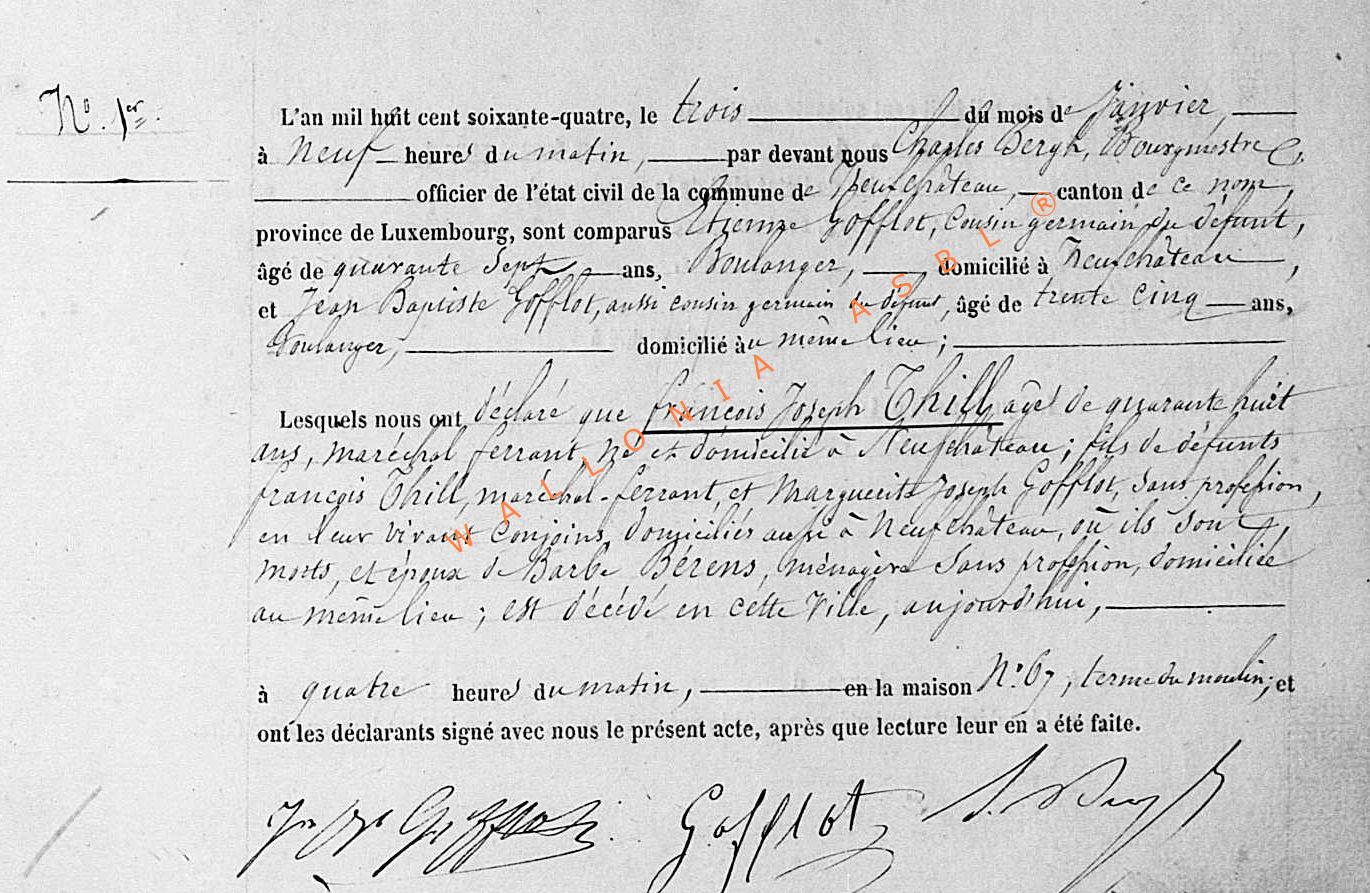 N° 1er
L'an mil huit cent soixante-quatre, le trois du mois de Janvier,
à neuf heures du matin, par devant nous Charles Bergh, Bourgmestre &
officier de l'état civil de la commune de Neufchâteau, canton de ce nom,
province de Luxembourg, sont comparus Etienne Gofflot, Cousin germain du défunt,
âgé de quarante Sept ans, Boulanger, domicilié à Neufchâteau,
et Jean Baptiste Gofflot, aussi cousin germain du défunt, âgé de trente cinq ans,
Boulanger, domicilié au même lieu;
Lesquels nous ont déclaré que françois Joseph Thill agé de quarante huit
ans, maréchal ferrant, né et domicilié à Neufchâteau; fils de défunts
françois Thill, maréchal-ferrant, et Marguerite Joseph Gofflot, Sans profession,
en leur vivant Conjoins, domiciliés aussi à Neufchâteau, où ils sont
morts, et époux de Barbe Bérens, ménagère Sans profession, domiciliée
au même lieu; est décédé en cette Ville, aujourd'hui,
à quatre heures du matin, en la maison N° 67, terme du moulin; et
ont les déclarants signé avec nous le présent acte, après que lecture leur en a été faite.
Gofflot Gofflot
WALLONIA ASBL ®